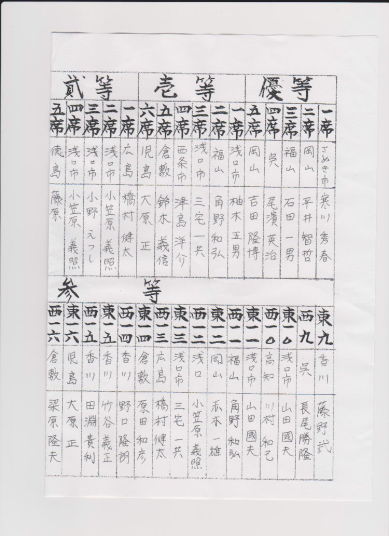 優等
一席 さぬき市 寒川 秀春
二席 岡山 平井 智哲
三席 福山 石田 一男
四席 呉 尾濱 英治
五席 岡山 吉田 隆博
壱等
一席 浅口市 柚木 五男
二席 福山 角野 和弘
三席 浅口市 三宅 一共
四席 西条市 津島 洋介
五席 倉敷 鈴木 義信
六席 児島 大原 正
貳等
一席 広島 橋村 健太
二席 浅口市 小笠原 義照
三席 浅口市 小野
四席 浅口市 小笠原 義照
五席 徳島 藤原
参等
東九 香川 藤野
西九 呉 長尾勝隆
東一〇 浅口市 山田國夫
西一〇 高知 川村和己
東一一 浅口市 山田國夫
西一一 福山 角野和弘
東一二 岡山 一雄
西一二 浅口 小笠原義照
東一三 浅口市 三宅一共
西一三 広島 橋村健太
東一四 倉敷 原田和彦
西一四 香川 野口隆朗
東一五 香川 竹谷義正
西一五 香川 田淵貴利
東一六 児島 大原正
西一六 倉敷 梁原隆夫